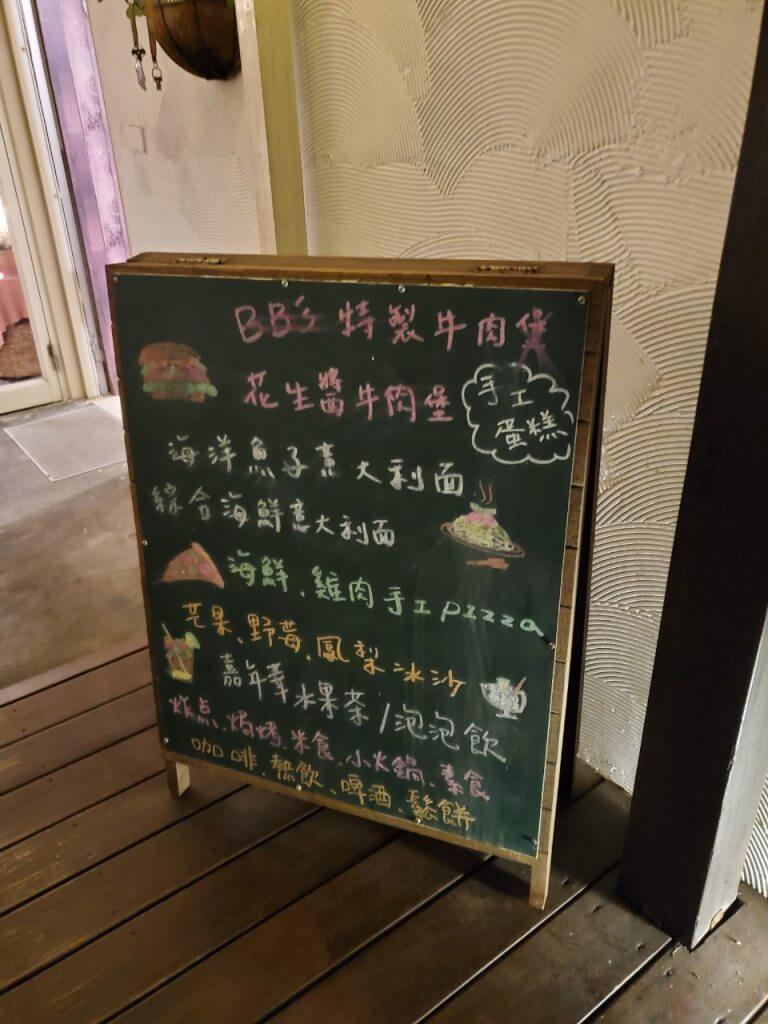 BB's 特製牛肉堡
花生醬牛肉堡
手工
蛋糕
海洋魚子意大利面
綜合海鮮意大利面
海鮮、雞肉手工pizza
芒果、野莓、鳳梨冰沙
嘉年華水果茶/泡泡飲
炸点、焗烤、米食、小火鍋、素食
咖啡、熱飲、啤酒、鬆餅